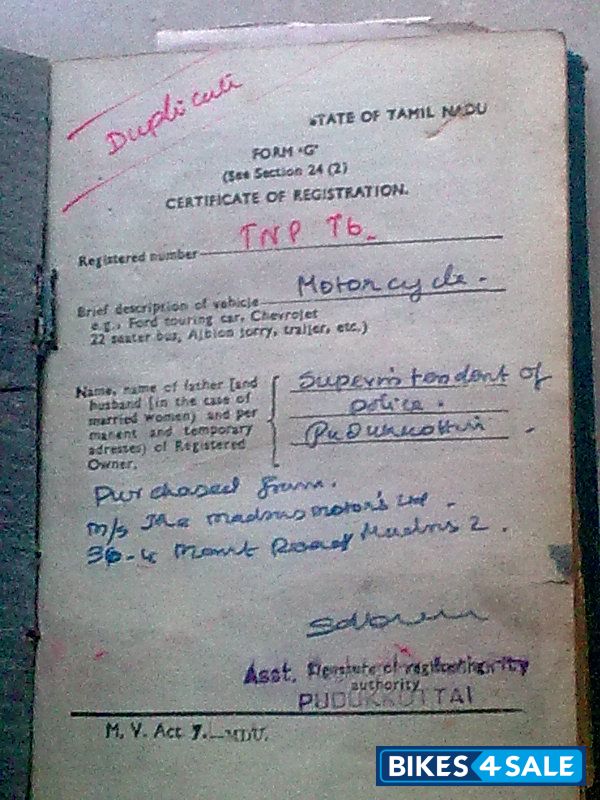 Duplicate
STATE OF TAMIL NADU
FORM 'G'
(See Section 24 (2)
CERTIFICATE OF REGISTRATION.
Registered number TNP 76
Brief description of vehicle Motorcycle.
e.g., Ford touring car, Chevrolet
22 seater bus, Albion lorry, trailer, etc.)
Name, name of father [and
husband [in the case of
married women) and per
manent and temporary
adresses) of Registered
Owner.
Superintendent of
Police.
Pudukkottai
Purchased from.
M/s The Madras motors Ltd.
36-4 Mount Road Madras 2.
Asst. Signature of registering
authority
PUDUKKOTTAI
M. V. Act 7.
BIKES4SALE